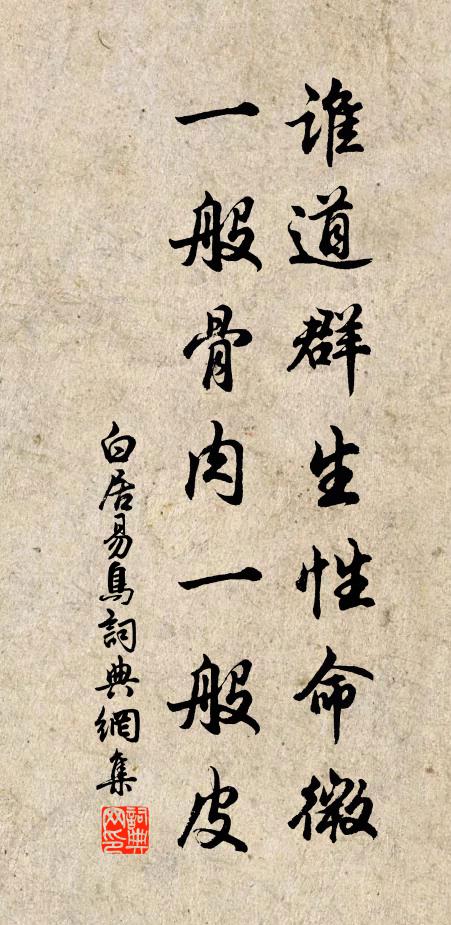 谁道群生性命微
一般骨肉一般皮
白居易鳥詞典網集
詞典網印